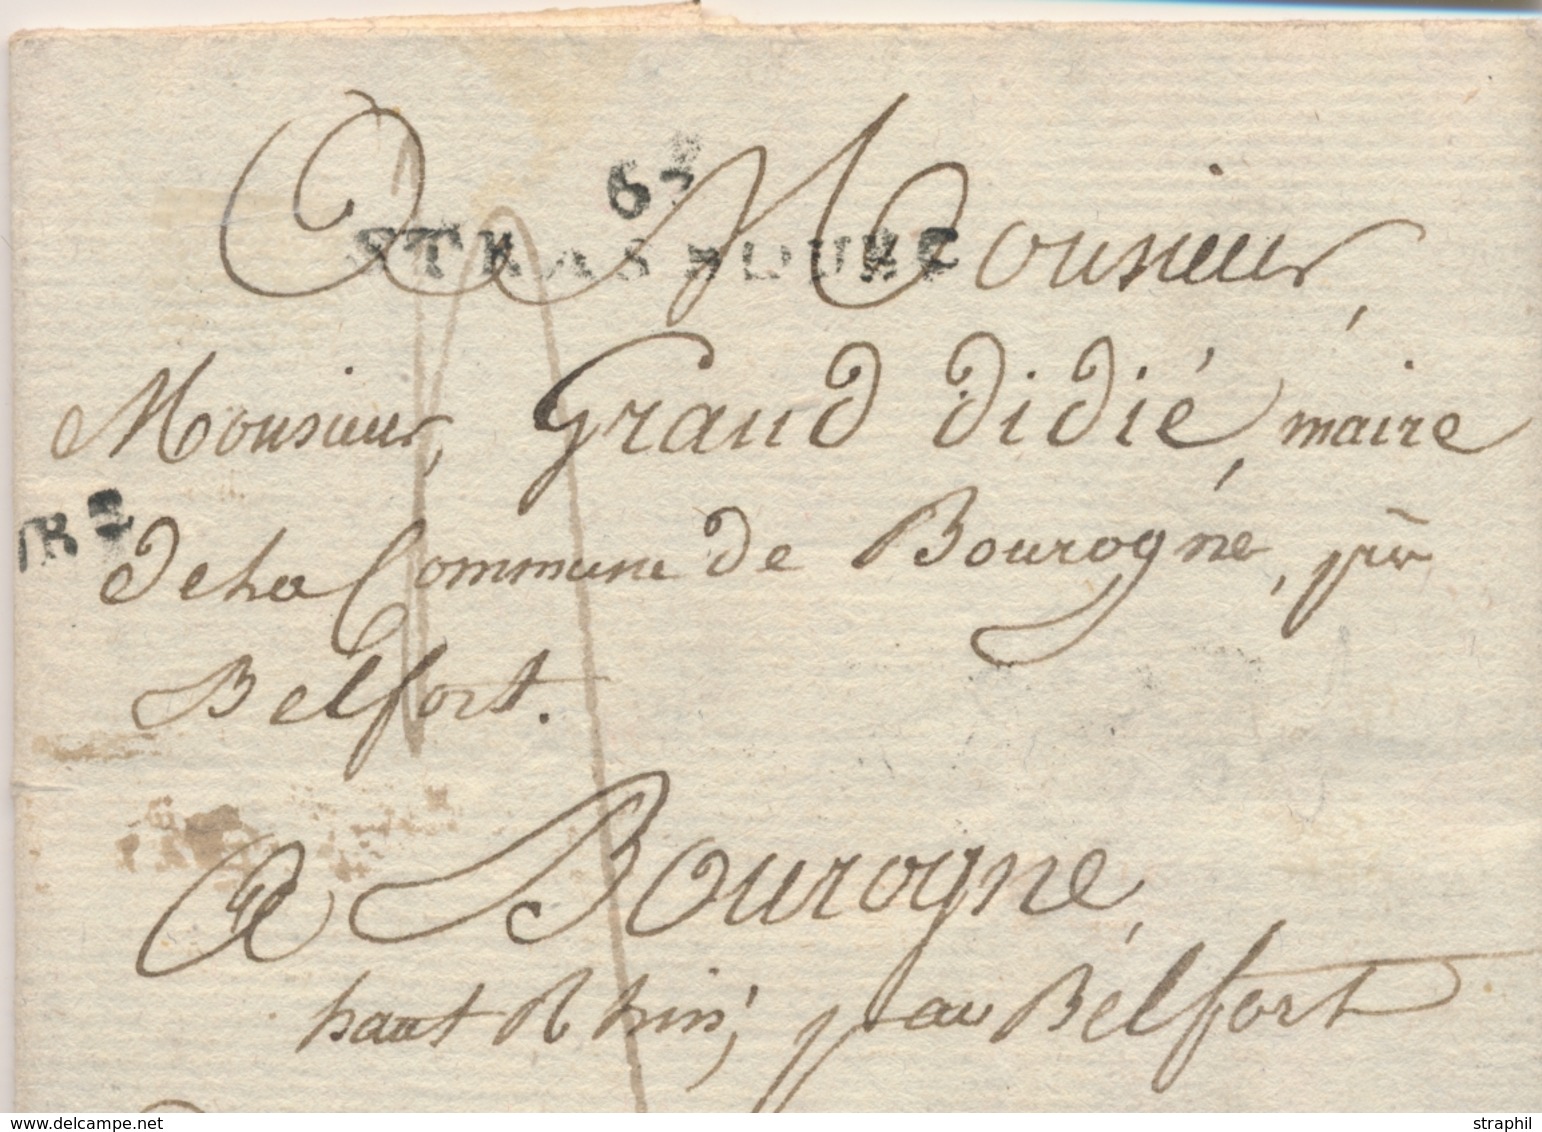 67
STRASBOURG
A Monsieur,
Monsieur, Grand didié, maire
de La Commune de Bourogne, près
Belfort.
A Bourogne,
haut Rhin, par Bélfort
delcampe.net
straphil